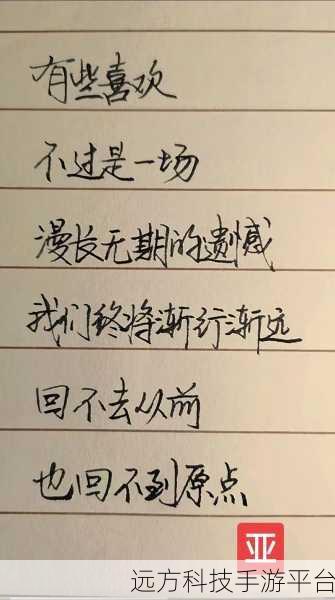 有些喜欢
不过是一场
漫长无期的遗憾
我们终将渐行渐远
回不去从前
也回不到原点
亚
远方科技手游平台